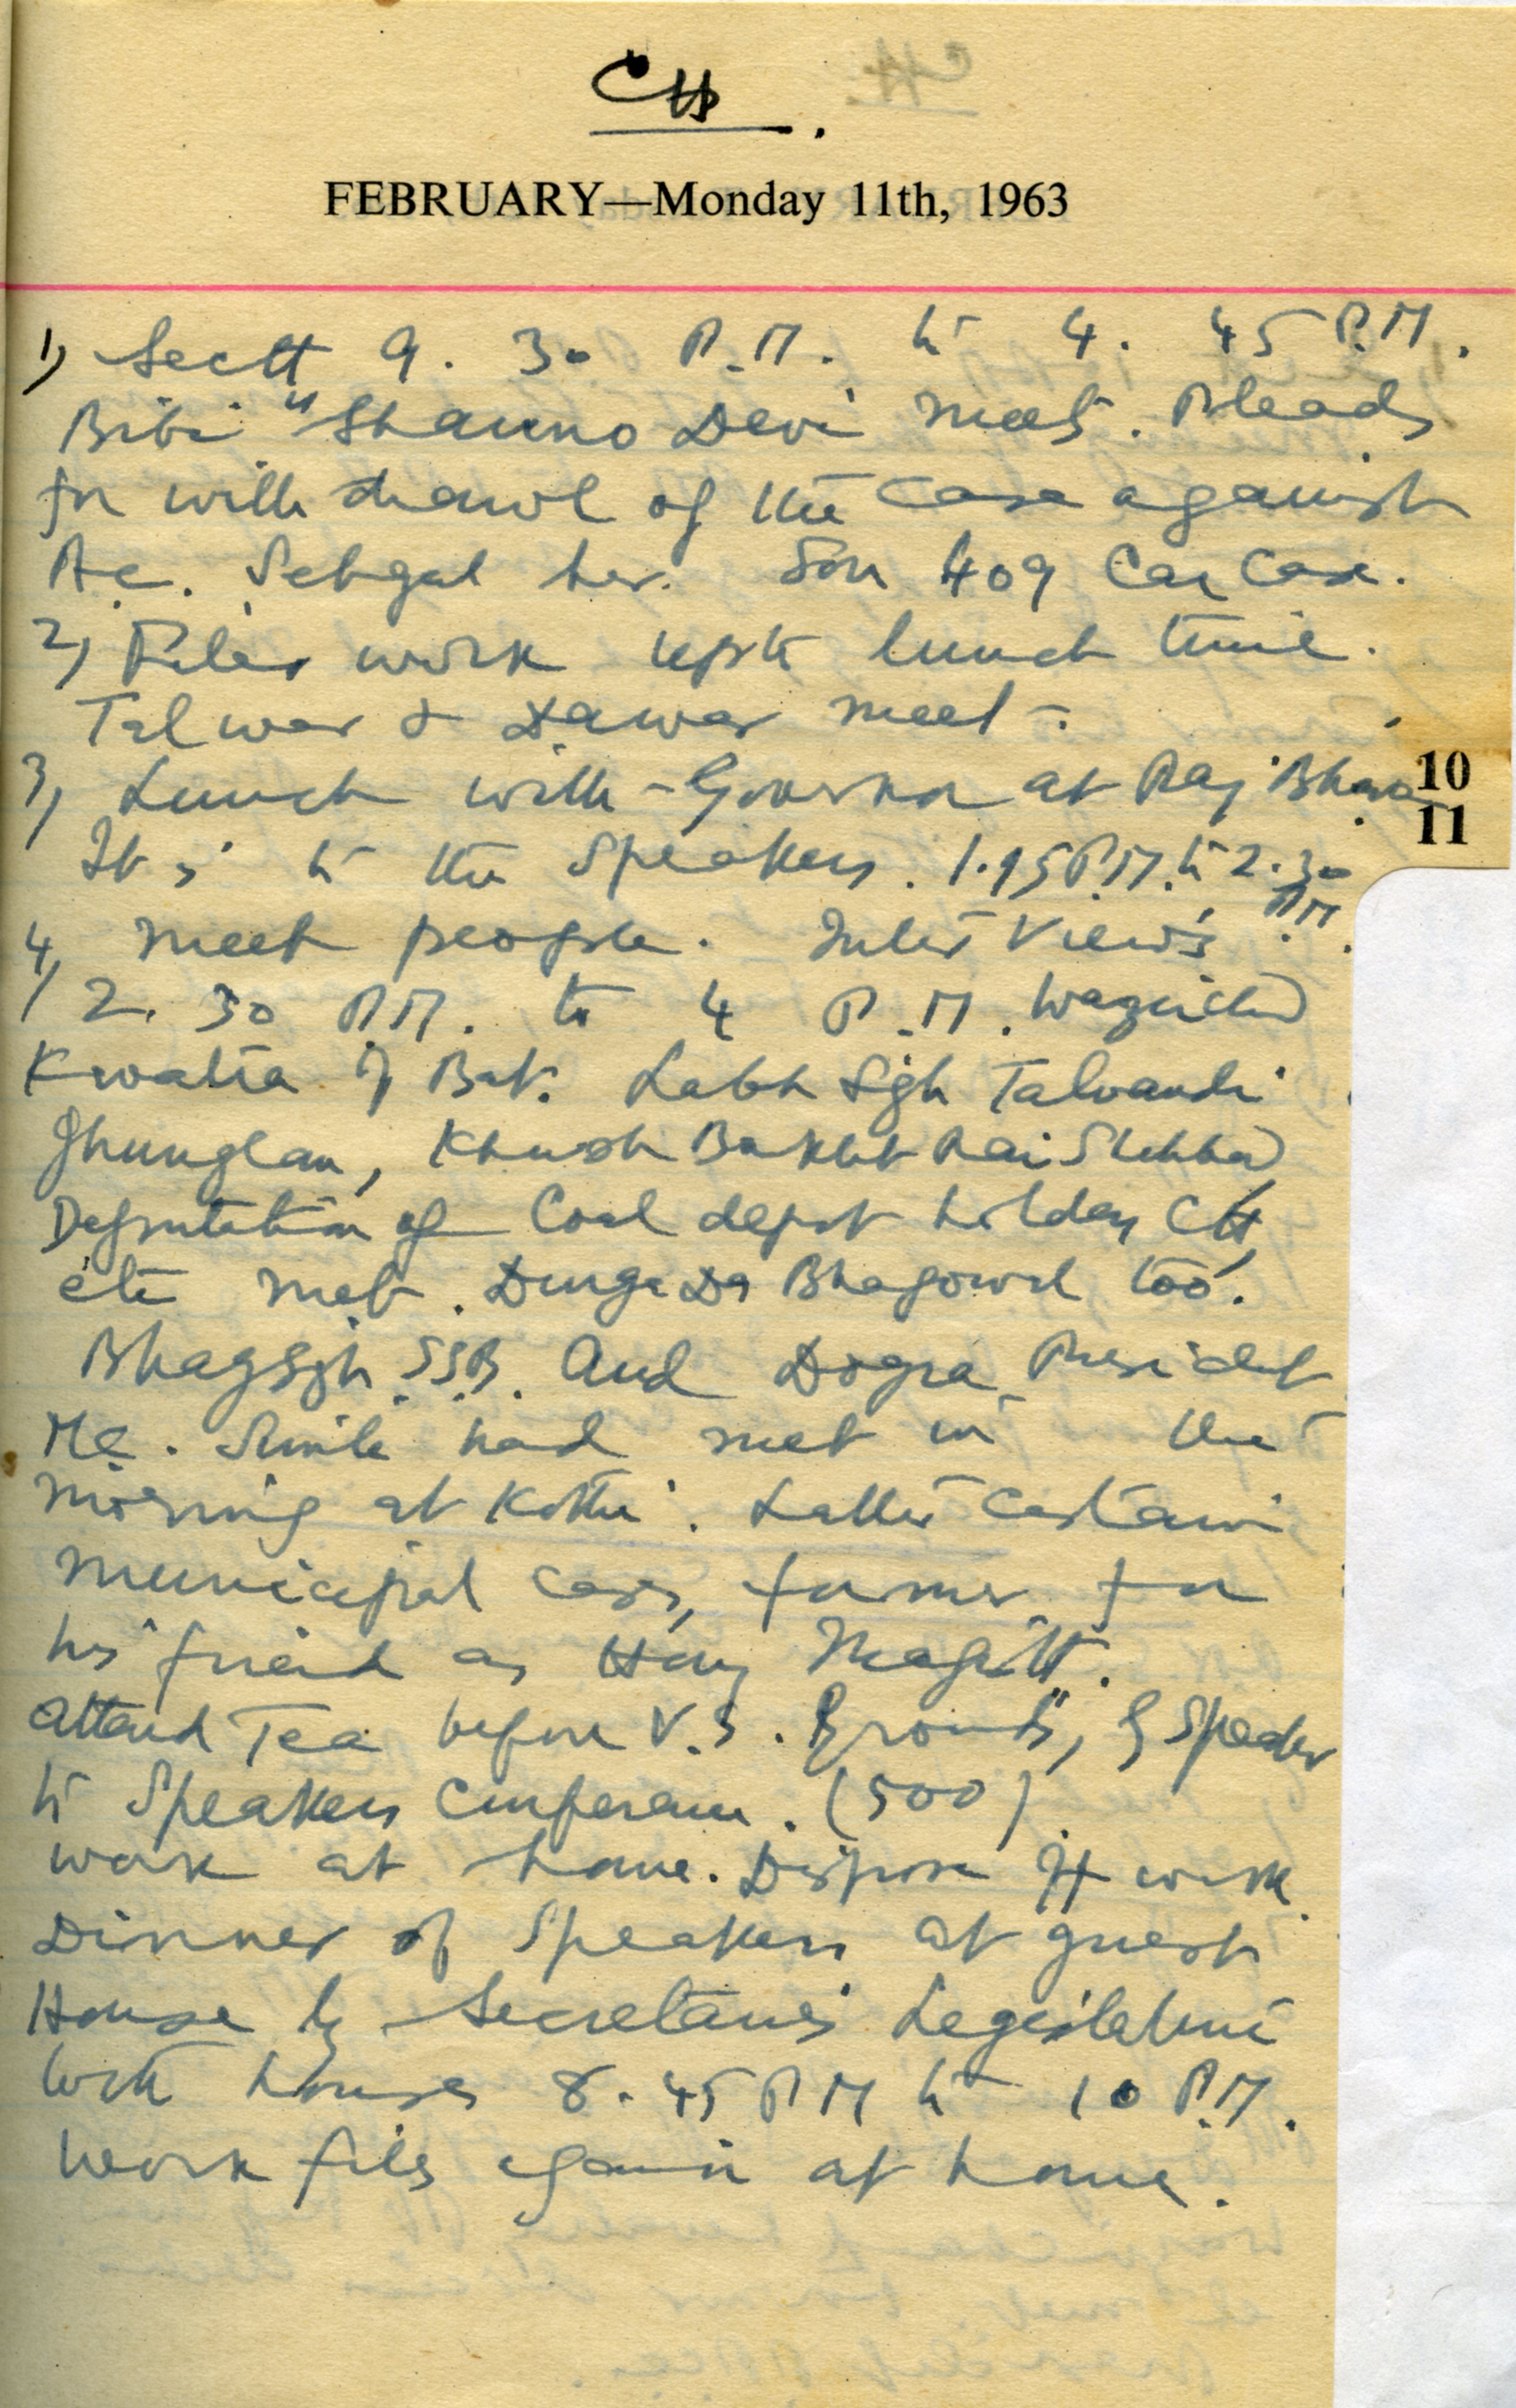 CH.
FEBRUARY—Monday 11th, 1963
1) Sectt 9. 30 A.M. to 4. 45 P.M.
Bibi "Shanno Devi meets. Pleads
for with drawl of the case against
A.C. Sehgal her. Son 409 Car Case.
2) Files work upto lunch time.
Talwar & Dawar meet.
3) Lunch with Governor at Raj Bhavan
10
11
It is to the Speakers. 1.45 P.M. to 2.30
P.M.
4) Meet people. Inter Views
2. 30 P.M. to 4 P.M. Wazirchand
Kwatra of Bat. Labh Sgh Talwandi
Jhunglan, Khush Bakht Rai
Deputation of Coal depot holders CH,
etc met. Durga Das Bhagowal too.
Bhag Sgh S.S.B. and Dogra President
M.C. Simla had met in the
morning at Kothi. Latter certain
municipal cases, former for
his friend as Hony Magistt.
Attend Tea before V.S. Grounds, by Speaker
to Speakers Conference. (500)
work at home. Dispose off work
Dinner of Speakers at guest
House by Secretaries Legislature
both houses 8. 45 P M to 10 P.M.
Work files again at home.